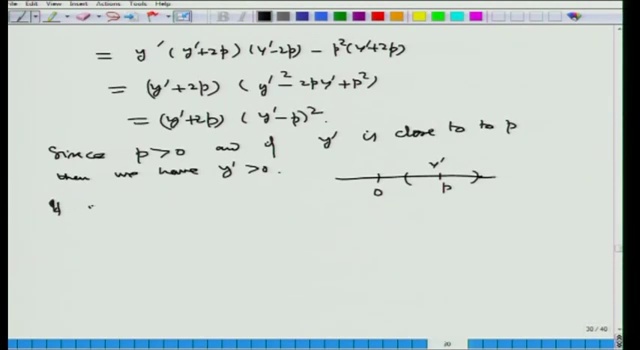 File Edit View Insert Actions Tools Help
= y' (y'+2p) (y'-2p) - p²(y'+2p)
= (y'+2p) (y'² - 2py' + p²)
= (y'+2p) (y'-p)².
Since p>0 and if y' is close to to p
then we have y' >0.
y'
0 p
30 / 40
30